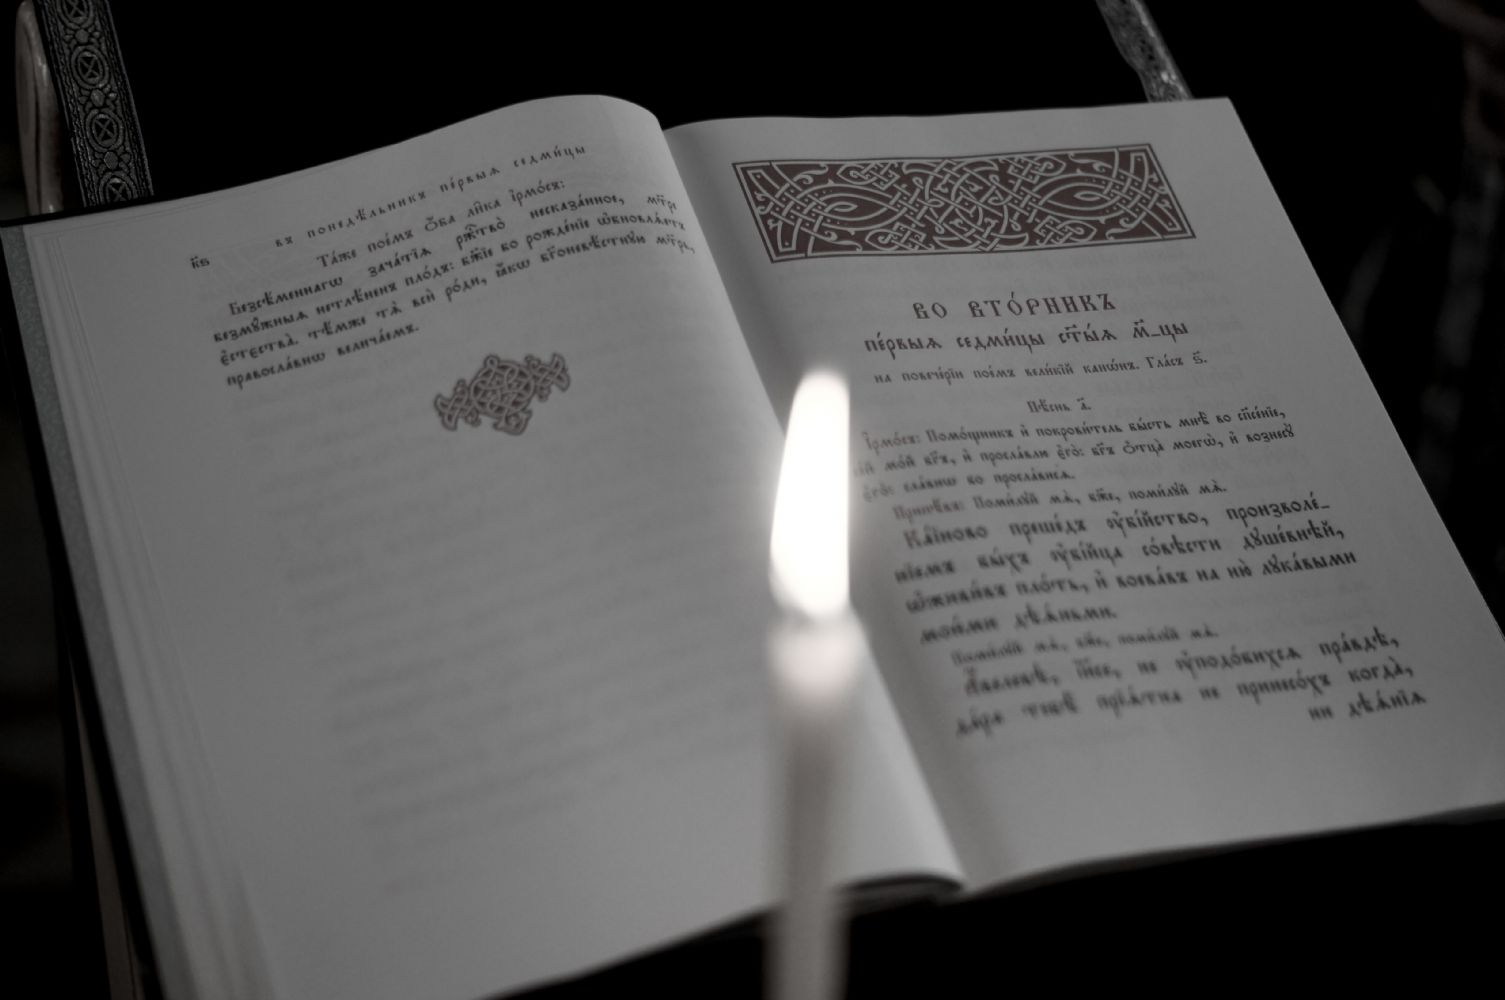 въ понедѣ́льникъ пе́рвыѧ седми́цы
к҃ѕ
Та́же пое́мъ ѻ҆́ба ли́ка і҆рмо́съ:
Безсѣ́меннагѡ зача́тїѧ ржⷭ҇тво̀ несказа́нное, мт҃ре
безмꙋ́жныѧ нетлѣ́ненъ пло́дъ: бж҃їе бо рожде́нїе ѡ҆бновлѧ́етъ
є҆стєства̀. тѣ́мже тѧ̀ всѝ ро́ди, ꙗ҆́кѡ бг҃оневѣ́стнꙋю мт҃рь,
правосла́внѡ велича́емъ.
ВО ВТО́РНИКЪ
пе́рвыѧ седми́цы ст҃ы́ѧ м҃-цы
на повече́рїи пое́мъ вели́кїй канѡ́нъ. Гла́съ ѕ҃.
Пѣ́снь а҃.
І҆рмо́съ: Помо́щникъ и҆ покрови́тель бы́сть мнѣ̀ во сп҃се́нїе,
мо́й бг҃ъ, и҆ просла́влю є҆го̀: бг҃ъ ѻ҆тца̀ моегѡ̀, и҆ вознесꙋ̀
є҆го̀: сла́внѡ бо просла́висѧ.
Припѣ́въ: Поми́лꙋй мѧ̀, бж҃е, поми́лꙋй мѧ̀.
Ка́їново преше́дъ ᲂу҆бі́йство, произволе́-
нїемъ бы́хъ ᲂу҆бі́йца со́вѣсти дꙋше́внѣй,
ѡ҆живи́въ пло́ть, и҆ воева́въ на ню̀ лꙋка́выми
мои́ми дѣѧ́ньми.
Поми́лꙋй мѧ̀, бж҃е, поми́лꙋй мѧ̀.
А҆́велевѣ, і҆и҃се, не ᲂу҆подо́бихсѧ пра́вдѣ,
да́ра тебѣ̀ прїѧ́тна не принесо́хъ когда̀,
ни дѣѧ́нїѧ